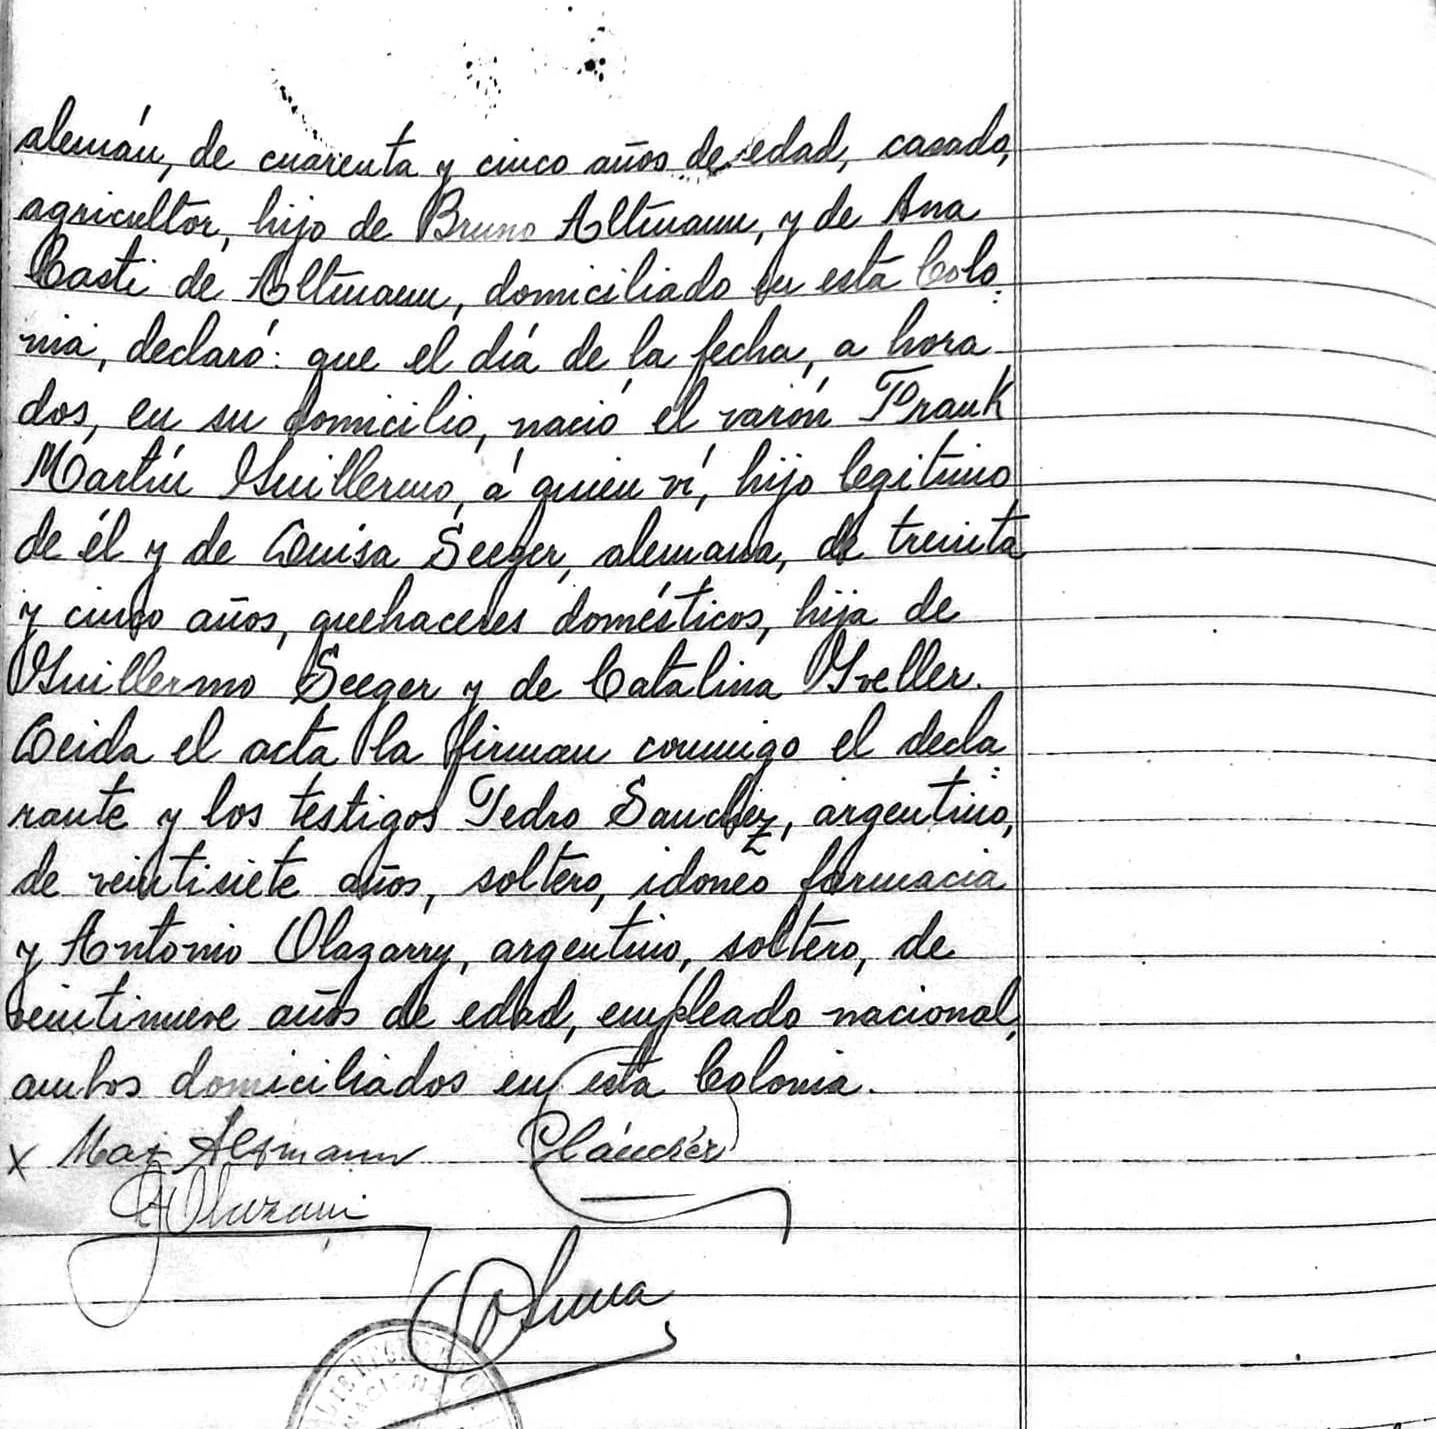 alemán, de cuarenta y cinco años de edad, casado,
agricultor, hijo de Bruno Altmann, y de Ana
Casti de Altmann, domiciliado en esta Colo=
nia, declaró: que el día de la fecha, a hora
dos, en su domicilio, nació el varón Frank
Martín Guillermo, á quien ví, hijo legítimo
de él y de Luisa Seeger, alemana, de treinta
y cinco años, quehaceres domésticos, hija de
Guillermo Seeger y de Catalina Gveller.
Leída el acta la firman conmigo el decla=
rante y los testigos Pedro Sanchez, argentino,
de veintisiete años, soltero, idoneo farmacia
y Antonio Olazarry, argentino, soltero, de
veintinueve años de edad, empleado nacional,
ambos domiciliados en esta Colonia.
x Max Altmann PSánchez